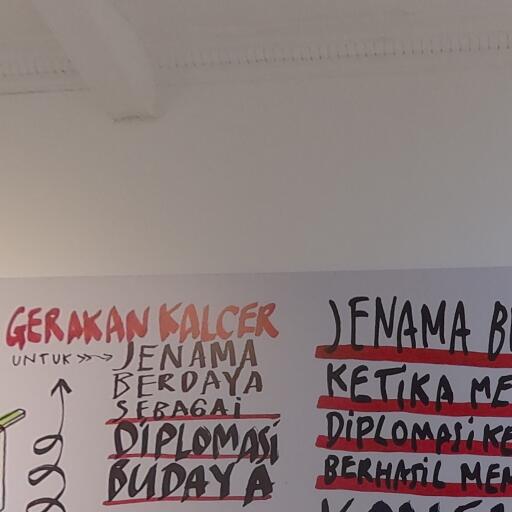 GERAKAN KALCER
UNTUK
JENAMA
BERDAYA
SEBAGAI
DIPLOMASI
BUDAYA
JENAMA
KETIKA
DIPLOMASI
BERHASIL